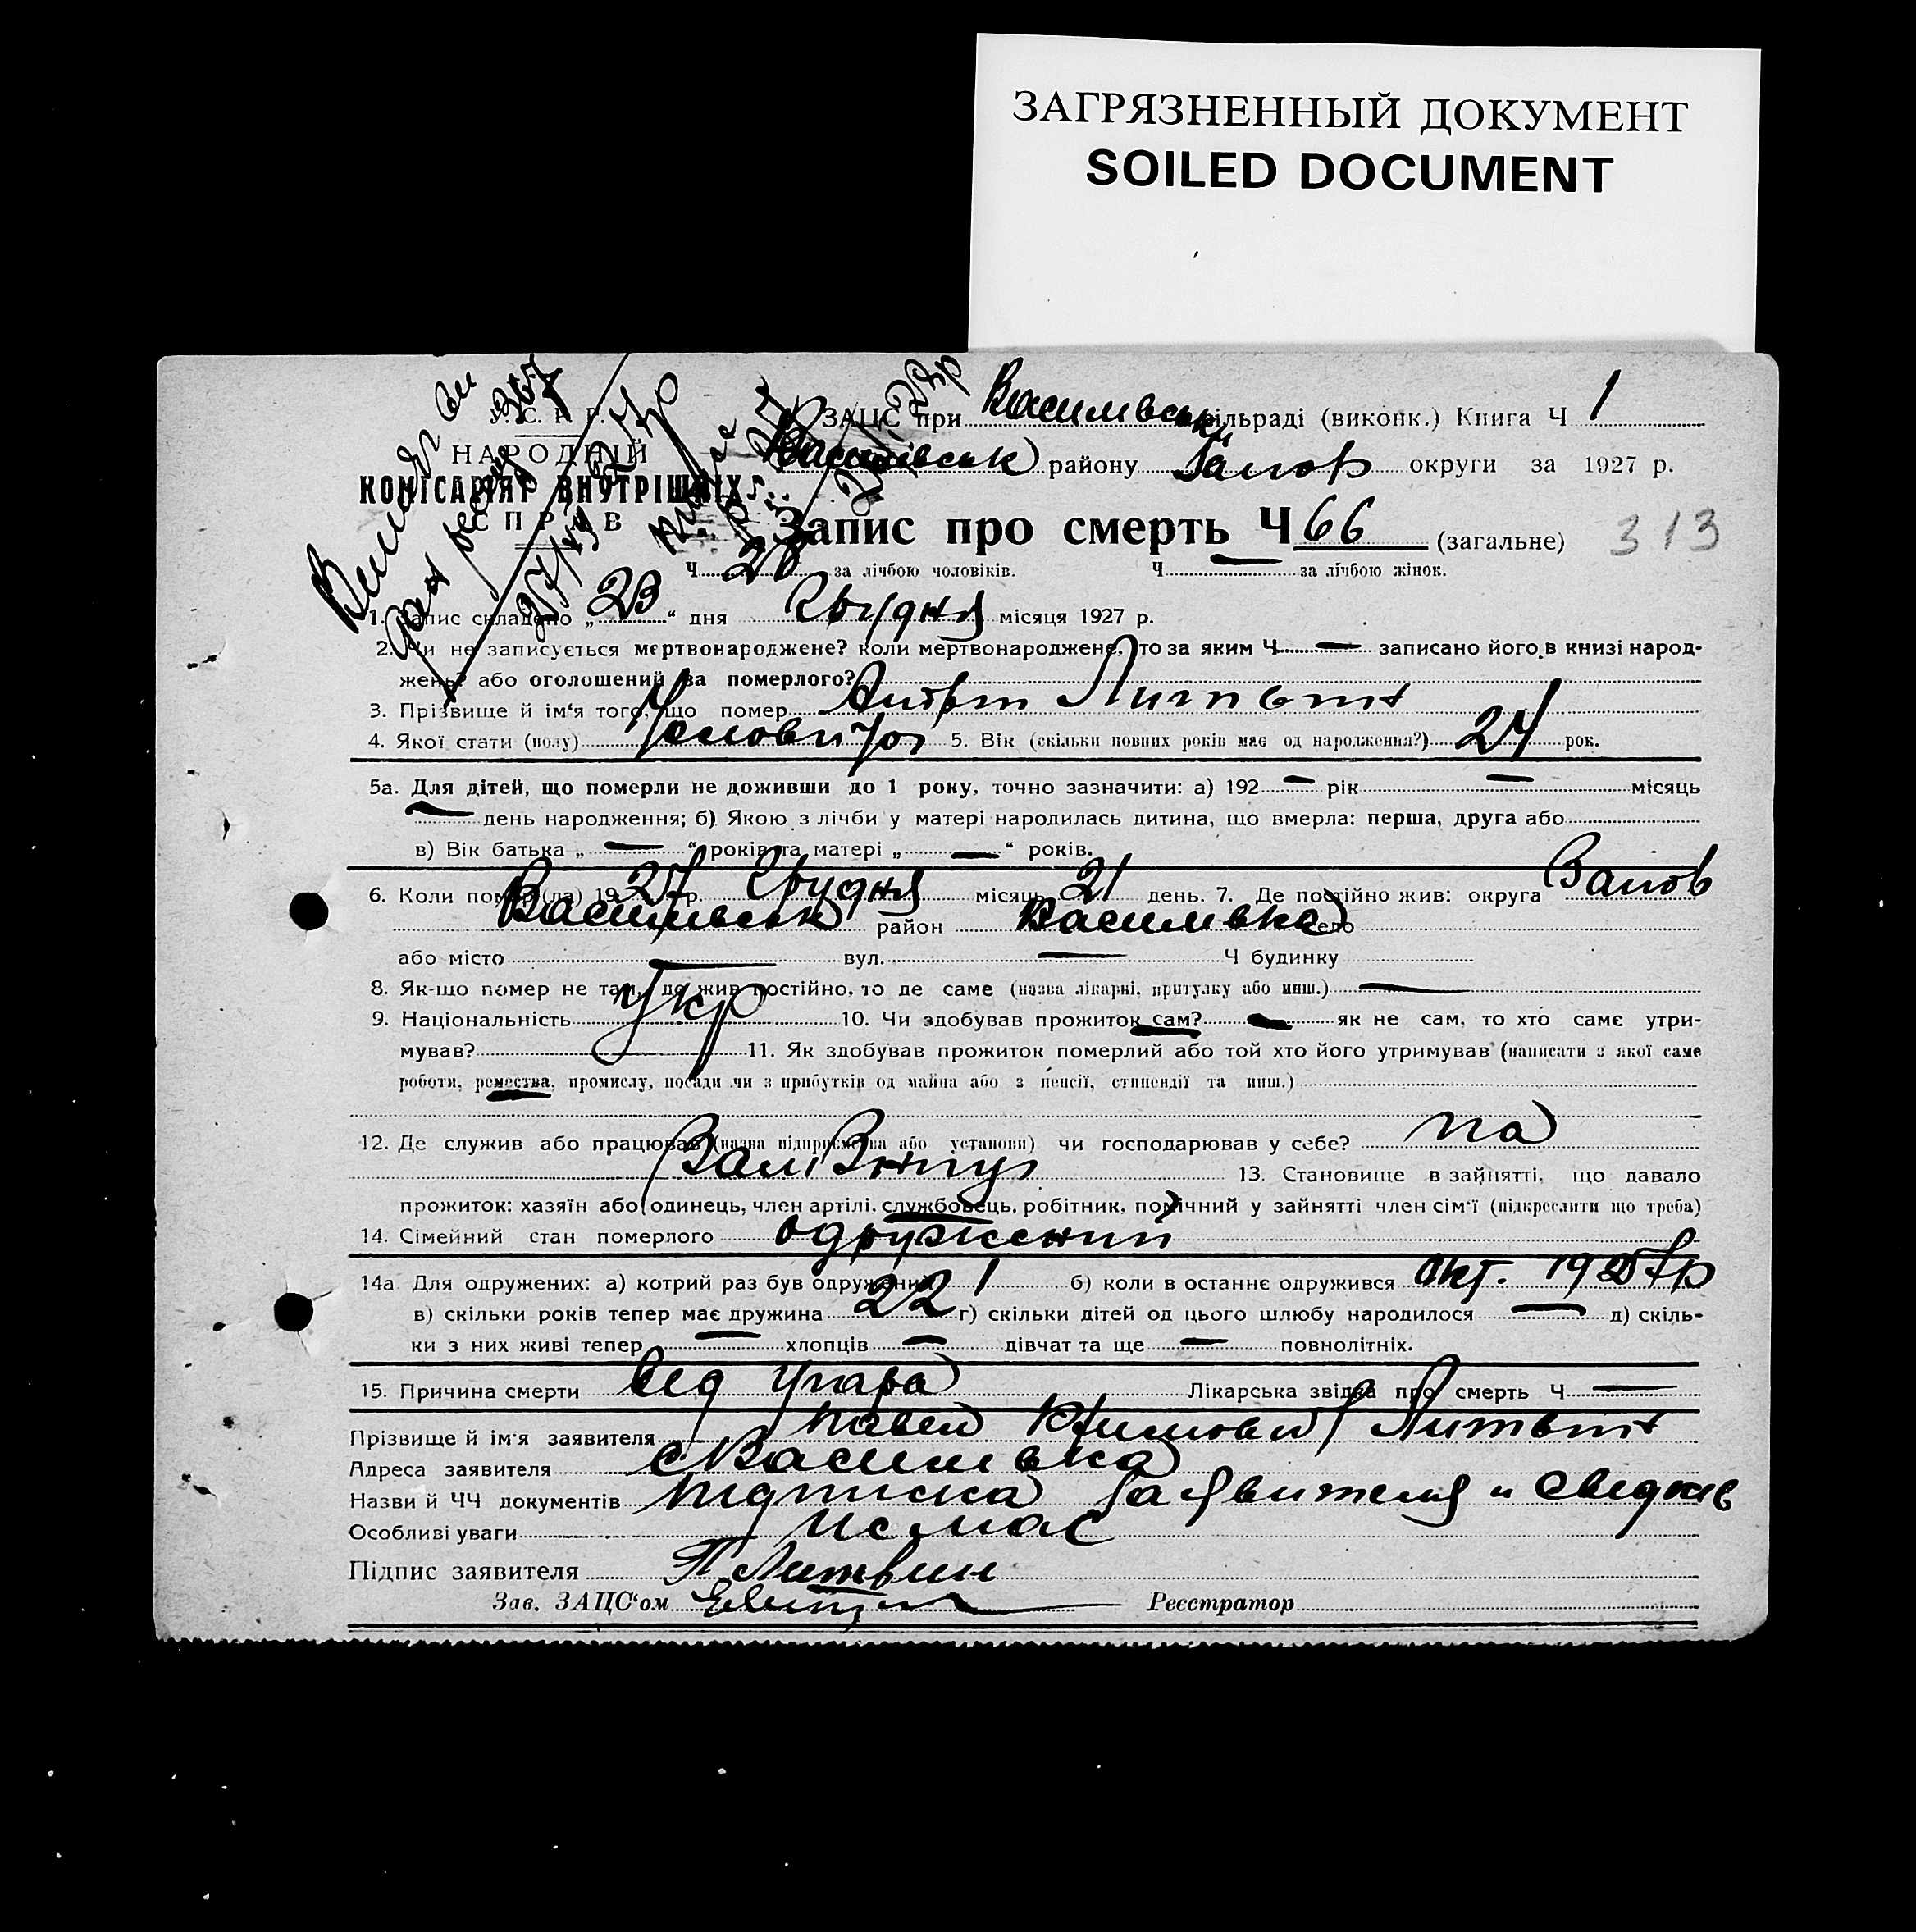 ЗАГРЯЗНЕННЫЙ ДОКУМЕНТ
SOILED DOCUMENT
У. С. Р. Р.
НАРОДНІЙ
КОМІСАРІЯТ ВНУТРІШНІХ
СПРАВ
ЗАЦС при Василівській сільраді (виконк.) Книга Ч 1
Василівськ району Запор округи за 1927 р.
Запис про смерть Ч 66 (загальне) 313
Ч 20 за лічбою чоловіків. Ч — за лічбою жінок.
1. Запис складено „23“ дня Грудня місяця 1927 р.
2. Чи не записується мертвонароджене? коли мертвонароджене, то за яким Ч — записано його в книзі народ-
жень? або оголошений за померлого?
3. Прізвище й ім'я того, що помер Литвин
4. Якої стати (полу) Чоловичої 5. Вік (скільки повних років має од народження?) 24 рок.
5а. Для дітей, що померли не доживши до 1 року, точно зазначити: а) 192 — рік — місяць
— день народження; б) Якою з лічби у матері народилась дитина, що вмерла: перша, друга або
в) Вік батька „ — “ років та матері „ — “ років.
6. Коли помер(ла) 1927 р. Грудня місяць 21 день. 7. Де постійно жив: округа Запор
Василівськ район Василівка село
або місто — вул. — Ч будинку
8. Як-що помер не там, де жив постійно, то де саме (назва лікарні, притулку або инш.) —
9. Національність Укр 10. Чи здобував прожиток сам? — як не сам, то хто саме утри-
мував? 11. Як здобував прожиток померлий або той хто його утримував (написати з якої саме
роботи, ремества, промислу, посади чи з прибутків од майна або з пенсії, стипендії та инш.)
12. Де служив або працював (назва підприємства або установи) чи господарював у себе? на
13. Становище в зайнятті, що давало
прожиток: хазяїн або одинець, член артілі, службовець, робітник, помічний у зайнятті член сім'ї (підкреслити що треба)
14. Сімейний стан померлого одружений
14а Для одружених: а) котрий раз був одружений 1 б) коли в останнє одружився Окт. 1927 р
в) скільки років тепер має дружина 22 г) скільки дітей од цього шлюбу народилося — д) скіль-
ки з них живі тепер — хлопців — дівчат та ще — повнолітніх.
15. Причина смерти від угара Лікарська звідка про смерть Ч —
Прізвище й ім'я заявителя Павел Литвин
Адреса заявителя с Василівка
Назви й ЧЧ документів підписка заявителя и
Особливі уваги немає
Підпис заявителя П Литвин
Зав. ЗАЦС'ом Реєстратор